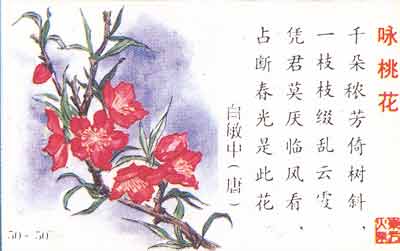 咏桃花
千朵秾芳倚树斜，
一枝枝缀乱云霞。
凭君莫厌临风看，
占断春光是此花
白敏中（唐）
50-50